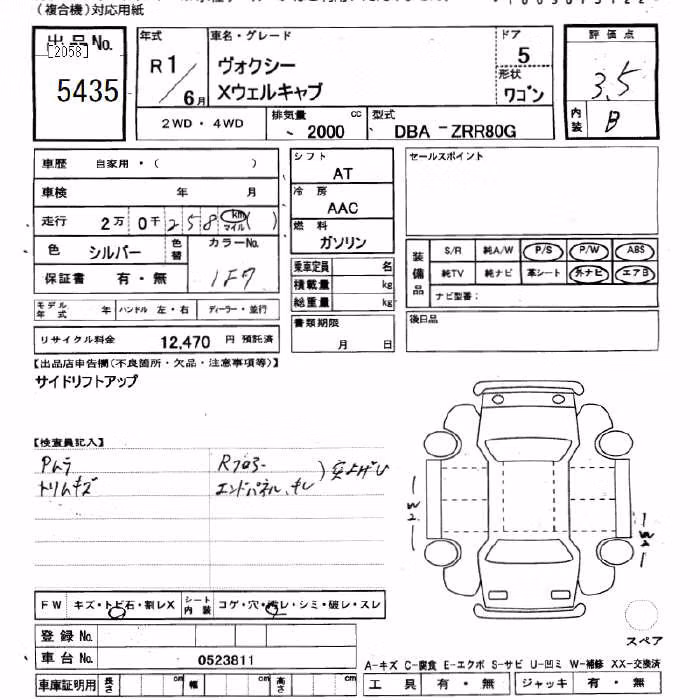 (複合機)対応用紙
出品No.
[2058]
5435
年式
R1/6月
車名・グレード
ヴォクシー
Xウェルキャブ
ドア
5
形状
ワゴン
評価点
3.5
内装
B
2WD・4WD
排気量
2000 cc
型式
DBA -ZRR80G
車歴 自家用・( )
車検 年 月
走行 2万 0千 258 km マイル ( )
色 シルバー 色替
カラーNo.
1F7
保証書 有・無
モデル年式 年 ハンドル 左・右 ディーラー・並行
リサイクル料金 12,470 円 預託済
シフト
AT
冷房
AAC
燃料
ガソリン
乗車定員 名
積載量 kg
総重量 kg
書類期限
月 日
セールスポイント
装備品
S/R 純A/W P/S P/W ABS
純TV 純ナビ 革シート 外ナビ エアB
ナビ型番:
後日品
【出品店申告欄(不良箇所・欠品・注意事項等)】
サイドリフトアップ
【検査員記入】
Pムラ
トリムキズ
Rフロアー
エンドパネル、キレ
)突上げ
W2
W2
FW キズ・トビ石・割レX シート内装 コゲ・穴・汚レ・シミ・破レ・スレ
登録No.
車台No. 0523811
車庫証明用 長さ cm 幅 cm 高さ cm
スペア
A-キズ C-腐食 E-エクボ S-サビ U-凹ミ W-補修 XX-交換済
工具 有・無 ジャッキ 有・無